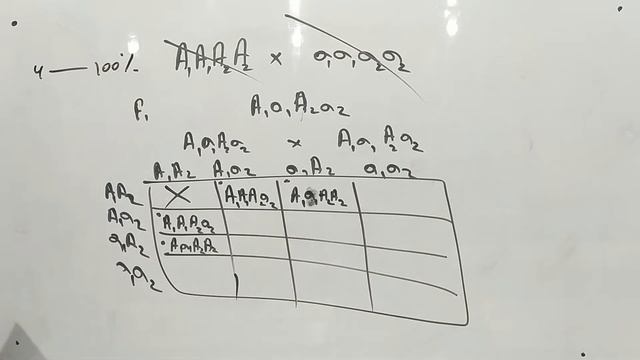 4 — 100% A₁A₁A₂A₂ × a₁a₁a₂a₂
F₁ A₁a₁A₂a₂
A₁a₁A₂a₂ × A₁a₁A₂a₂
A₁A₂ A₁a₂ a₁A₂ a₁a₂
A₁A₂ X A₁A₁A₂a₂ A₁a₁A₂A₂
A₁a₂ A₁A₁A₂a₂
a₁A₂ A₁a₁A₂A₂
a₁a₂